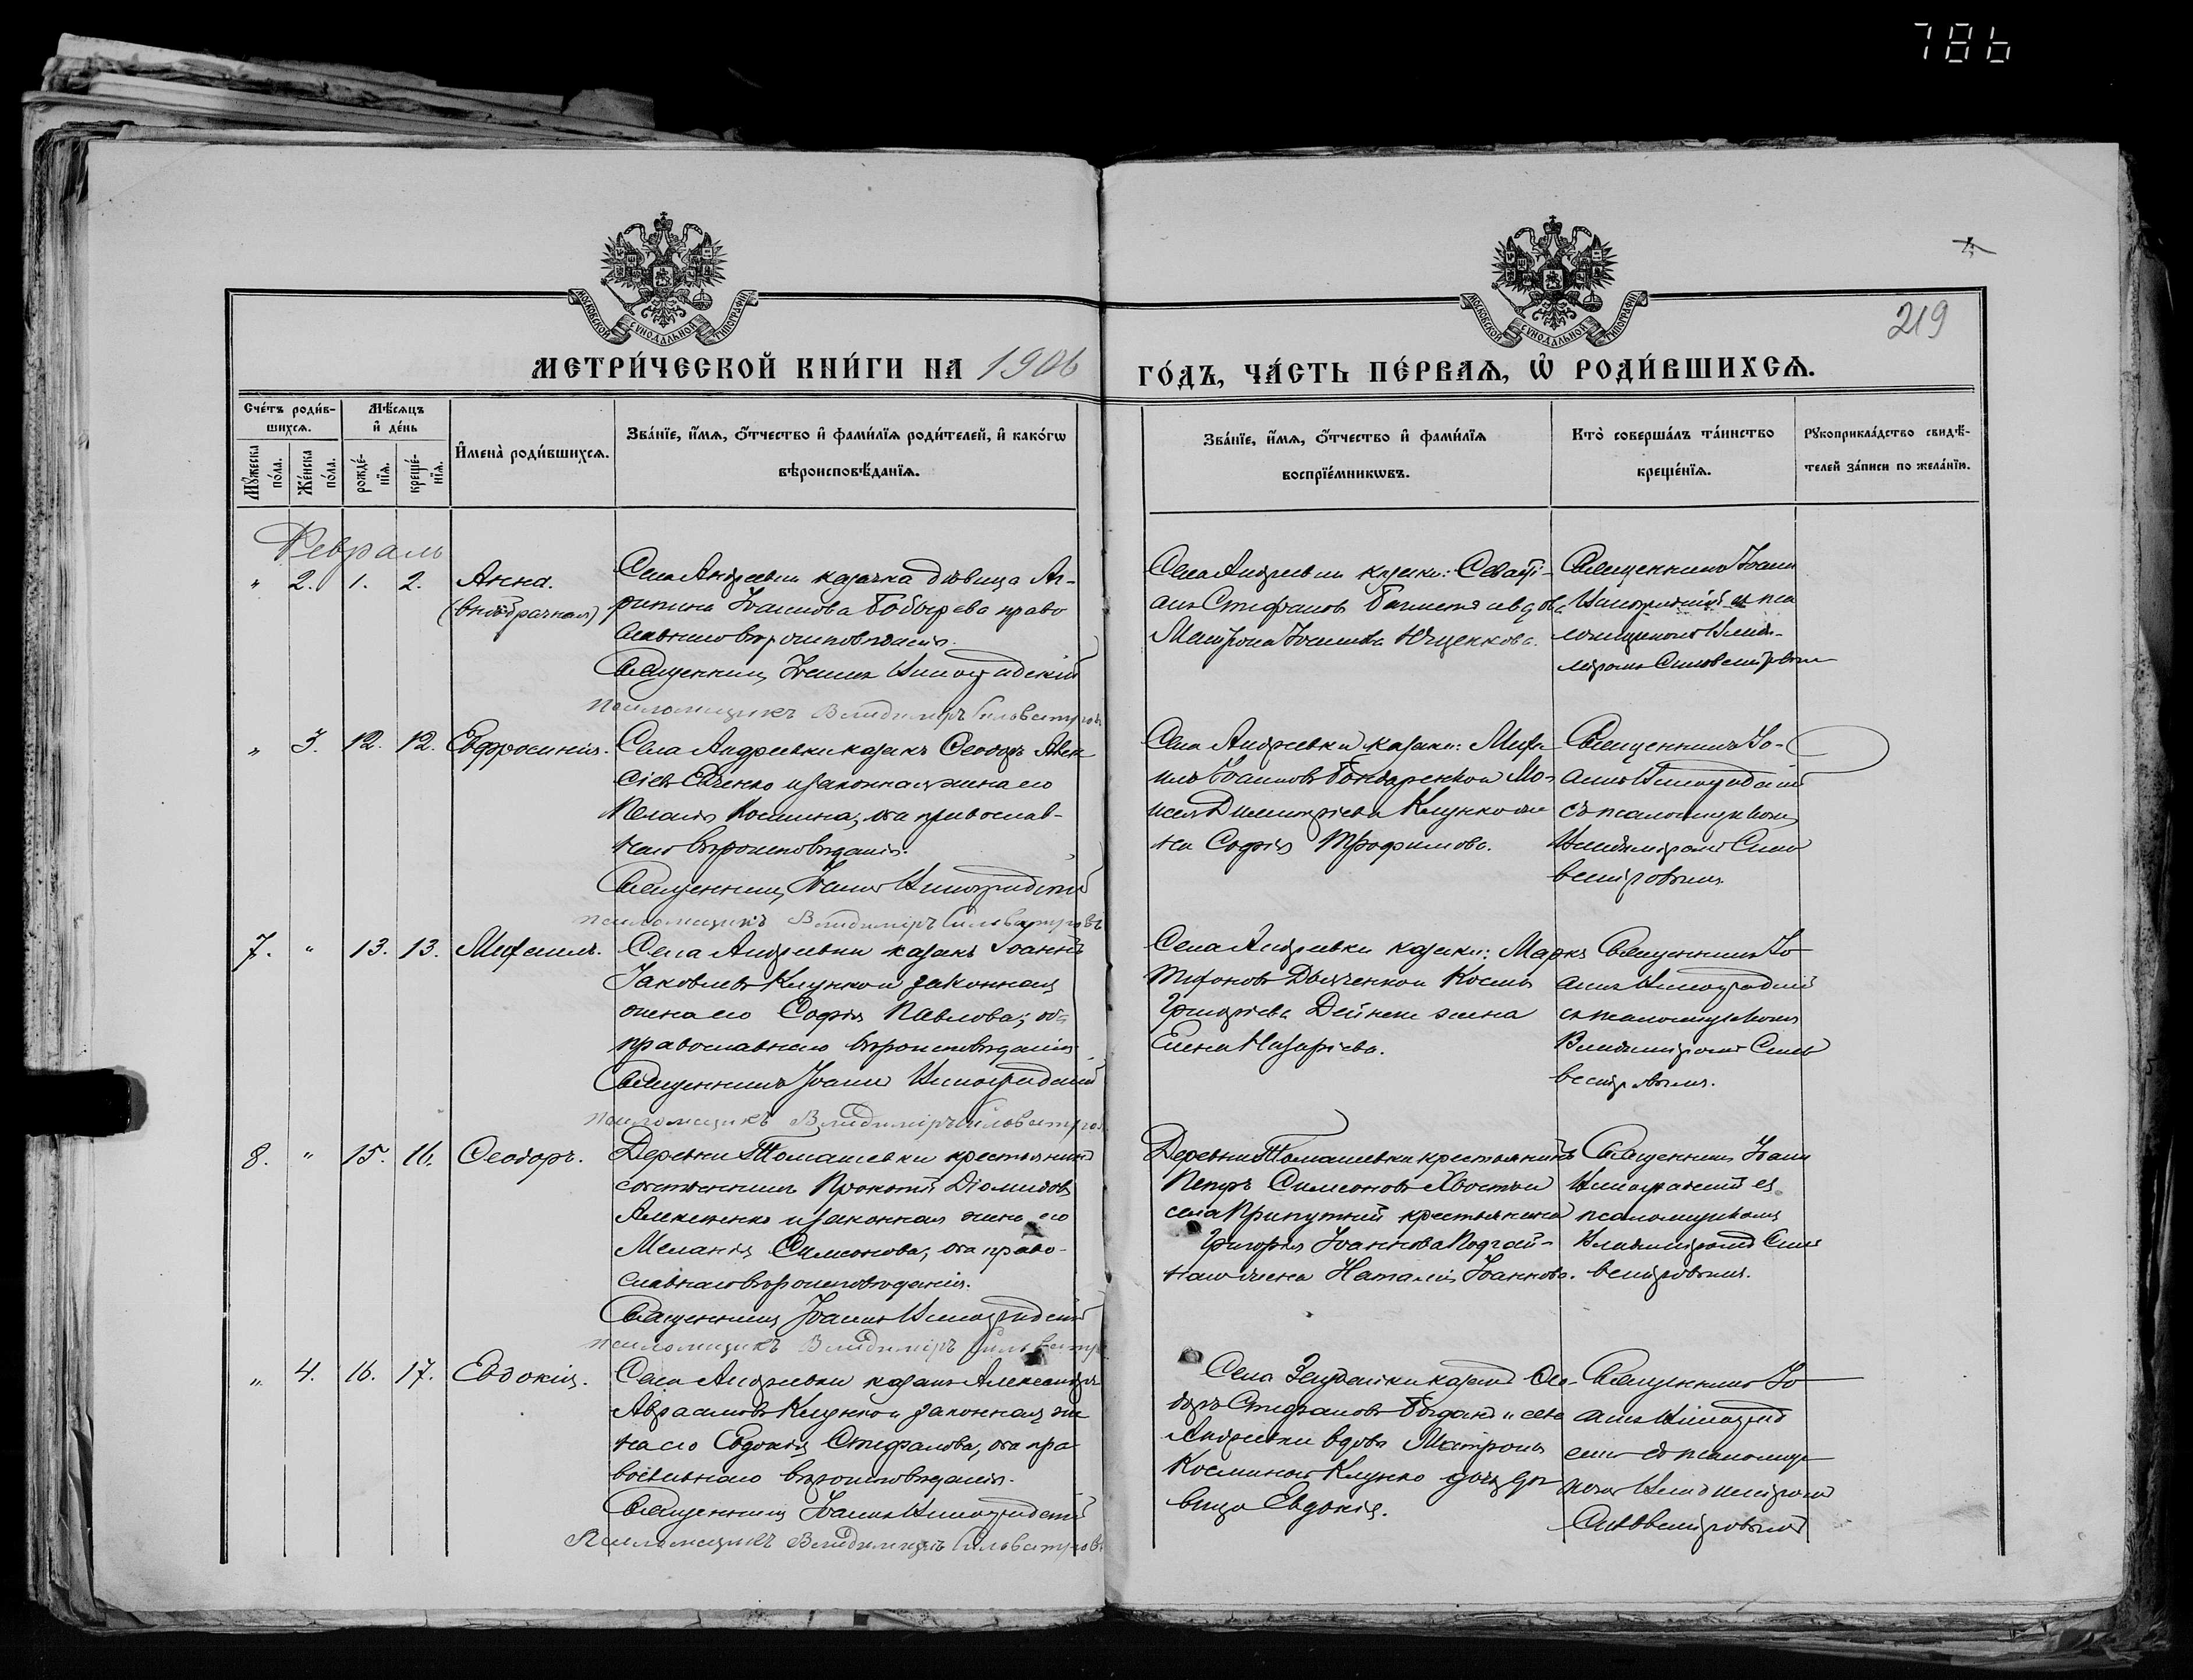 786
219
МОСКОВСКОЙ СѴНОДАЛЬНОЙ ТИПОГРАФІИ
МОСКОВСКОЙ СѴНОДАЛЬНОЙ ТИПОГРАФІИ
МЕТРИ́ЧЕСКОЙ КНИ́ГИ НА 1906 ГО́ДЪ, ЧА́СТЬ ПЕ́РВАѦ, Ѡ҆ РОДИ́ВШИХСѦ.
Сче́тъ роди́в-
шихсѧ.
Мꙋ́жеска по́ла.
Же́нска по́ла.
Мѣ́сѧцъ
и҆ де́нь
рожде́-
нїѧ.
креще́-
нїѧ.
И҆мена̀ роди́вшихсѧ.
Зва́нїе, и҆́мѧ, ѻ҆́тчество и҆ фами́лїѧ роди́телей, и҆ како́гѡ
вѣроисповѣ́данїѧ.
Зва́нїе, и҆́мѧ, ѻ҆́тчество и҆ фами́лїѧ
воспрїе́мникѡвъ.
Кто̀ соверша́лъ та́инство
креще́нїѧ.
Рꙋкоприкла́дство свидѣ́-
телей за́писи по жела́нїю.
Февраль
" 2. 1. 2. Анна.
(внѣбрачная)
Села Андреевки казачка дѣвица Аг-
рипина Іоаннова Бобырева право
славнаго вѣроисповѣданія.
Священникъ Іоаннъ Виноградскій
псаломщикъ Владиміръ Сильвестровъ
Села Андреевки казаки: Севасті-
анъ Стефановъ
Матрона Іоаннова Ющенкова.
Священникъ Іоаннъ
Виноградскій съ пса
ломщикомъ Влади-
міромъ Сильвестровымъ
" 3. 12. 12. Евфросинія.
Села Андреевки казакъ Ѳеодоръ Алек
сіевъ и законная жена его
Пелагія Космина, оба православ-
наго вѣроисповѣданія.
Священникъ Іоаннъ Виноградскій
псаломщикъ Владиміръ Сильвестровъ
Села Андреевки казаки: Миха
илъ Іоанновъ Бондаренко и Мо-
исея Димитріева Клунко же
на Софія Трофимова.
Священникъ Іо-
аннъ Виноградскій
съ псаломщикомъ
Владиміромъ Силь
вестровымъ.
7. " 13. 13. Михаилъ.
Села Андреевки казакъ Іоаннъ
Іаковлевъ Клунко и законная
жена его Софія Павлова; оба
православнаго вѣроисповѣданія
Священникъ Іоаннъ Виноградскій
псаломщикъ Владиміръ Сильвестровъ
Села Андреевки казаки: Маркъ
Тихоновъ Дьяченко и Космы
Григоріева Дейнеки жена
Елена Назаріева.
Священникъ Іо
аннъ Виноградскій
съ псаломщикомъ
Владиміромъ Силь
вестровымъ.
8. " 15. 16. Ѳеодоръ.
Деревни Томашевки крестьянинъ
собственникъ Прокопій Діомидовъ
Алексѣенко и законная жена его
Меланія Симеонова, оба право-
славнаго вѣроисповѣданія.
Священникъ Іоаннъ Виноградскій
псаломщикъ Владиміръ Сильвестровъ
Деревни Томашевки крестьянинъ
Петръ Симеоновъ и
села Припутней крестьянина
Григорія Іоаннова
жена Наталія Іоаннова.
Священникъ Іоаннъ
Виноградскій съ
псаломщикомъ
Владиміромъ Силь
вестровымъ.
" 4. 16. 17. Евдокія.
Села Андреевки казакъ Александръ
Авраамовъ Клунко и законная же
на его Евдокія Стефанова, оба пра
вославнаго вѣроисповѣданія.
Священникъ Іоаннъ Виноградскій
Псаломщикъ Владиміръ Сильвестровъ
Села казакъ Ѳео-
доръ Стефановъ Богданъ и села
Андреевки вдовы Матроны
Косминой Клунко дочь дѣ
вица Евдокія.
Священникъ Іо
аннъ Виноград
скій съ псаломщи
комъ Владиміромъ
Сильвестровымъ